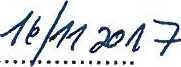 16/11 2017